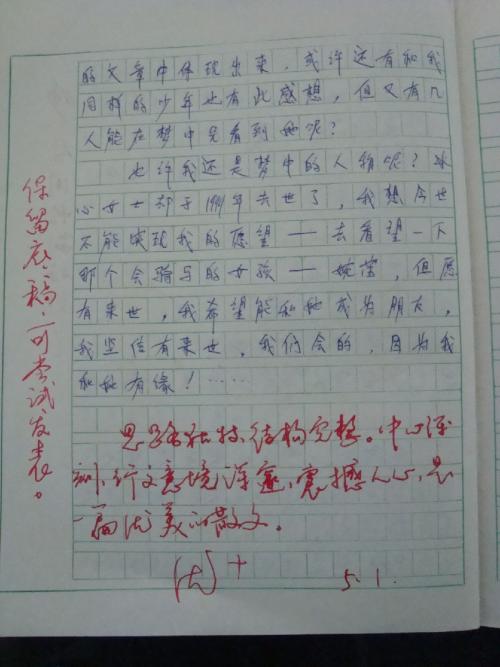 的文章中体现出来，或许还有和我
同样的少年也有此感想，但又有几
人能在梦中见看到她呢？
也许我还是梦中的人物呢？冰
心女士却于1999年去世了，我想今世
不能实现我的愿望——去看望一下
那个会骑马的女孩——婉莹，但愿
有来世，我希望能和她成为朋友，
我坚信有来世，我们会的，因为我
和她有缘！……
保留底稿，可尝试发表。
思路独特，结构完整。中心深
刻，行文意境深邃，震撼人心，是
一篇优美的散文。
优+
5.1.